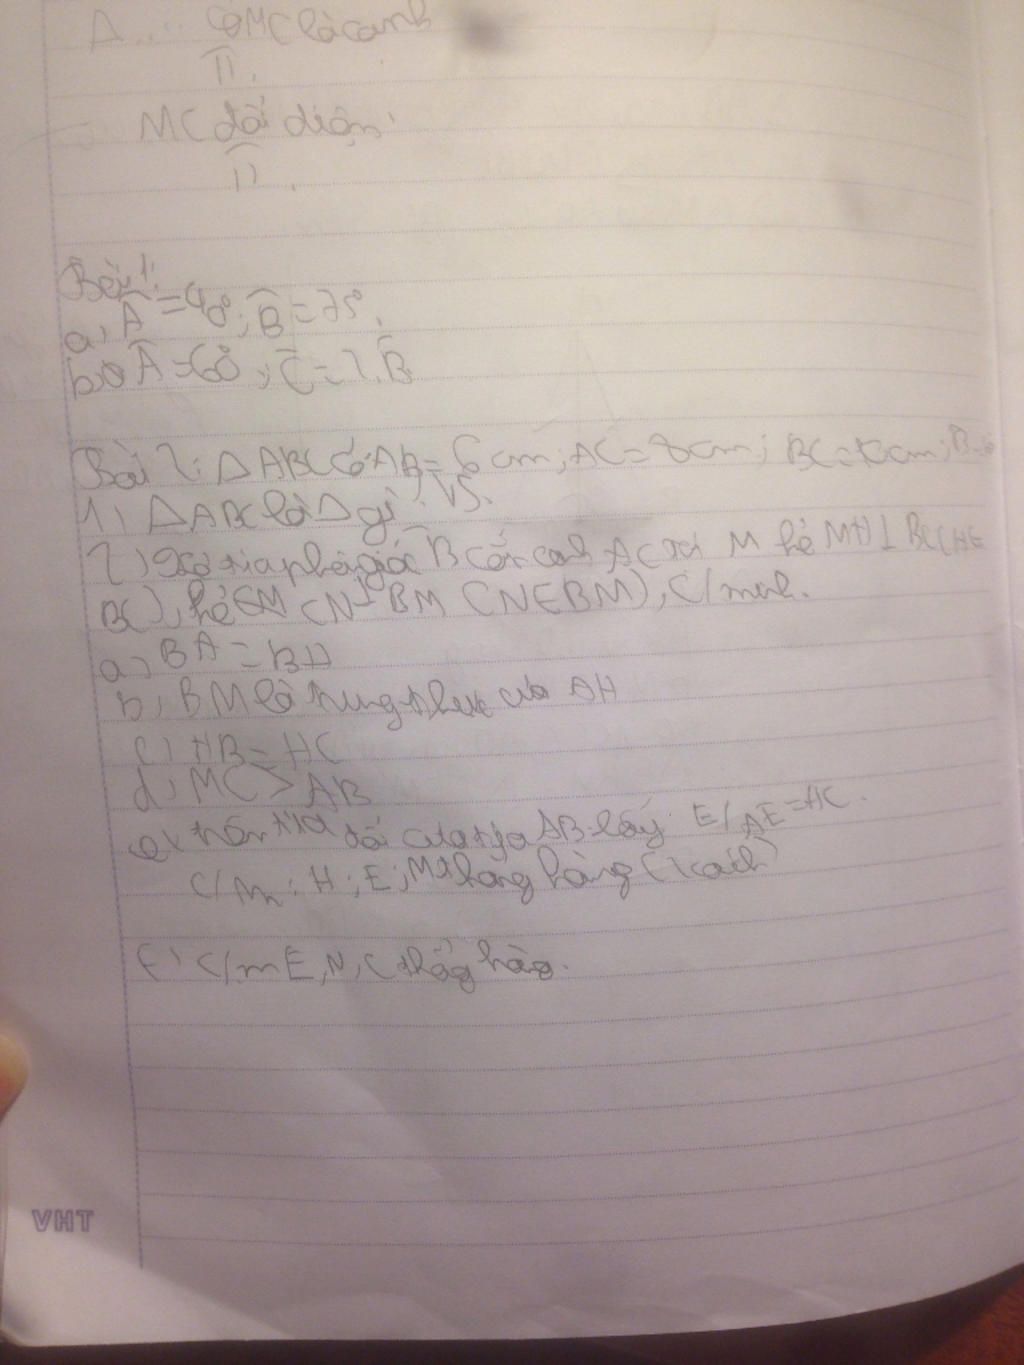 Δ .... có MC là cạnh
MC đối diện
Bài 1:
a, Â = 40°; B̂ = 75°.
b, Â = 60°, Ĉ = 2.B̂
Bài 2: Δ ABC có AB = 6cm; AC = 8cm; BC = 10cm;
1) Δ ABC là Δ gì? VS.
2) tia phân giác B̂ cắt cạnh AC tại M kẻ MH ⊥ BC (H ∈
BC), kẻ CN ⊥ BM (N ∈ BM), C/minh.
a, BA = BH
b, BM là trung trực của AH
c) HB = HC
d, MC > AB
e, trên tia đối của tia AB lấy E / AE = HC.
C/m: H; E; M thẳng hàng (2 cách)
f) C/m E, N, C thẳng hàng.
VHT